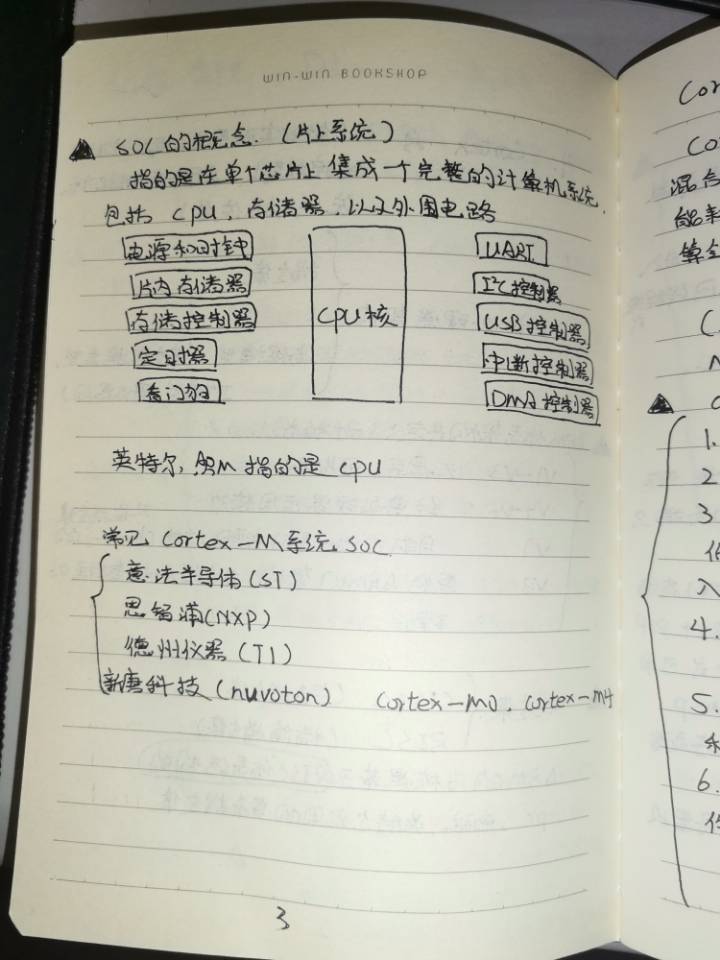 WIN-WIN BOOKSHOP
▲ SOC的概念.（片上系统）
指的是在单个芯片上集成一个完整的计算机系统,
包括 cpu, 存储器, 以及外围电路
电源和时钟
片内存储器
存储控制器
定时器
看门狗
cpu核
UART
I²C控制器
USB控制器
中断控制器
DMA控制器
英特尔, ARM 指的是 cpu
常见 Cortex-M系统 SOC
意法半导体(ST)
恩智浦(NXP)
德州仪器(TI)
新唐科技(nuvoton) Cortex-M0, Cortex-M4
3
Cor
Co
混合
算
▲
1.
2
3
入
4.
5.
6.